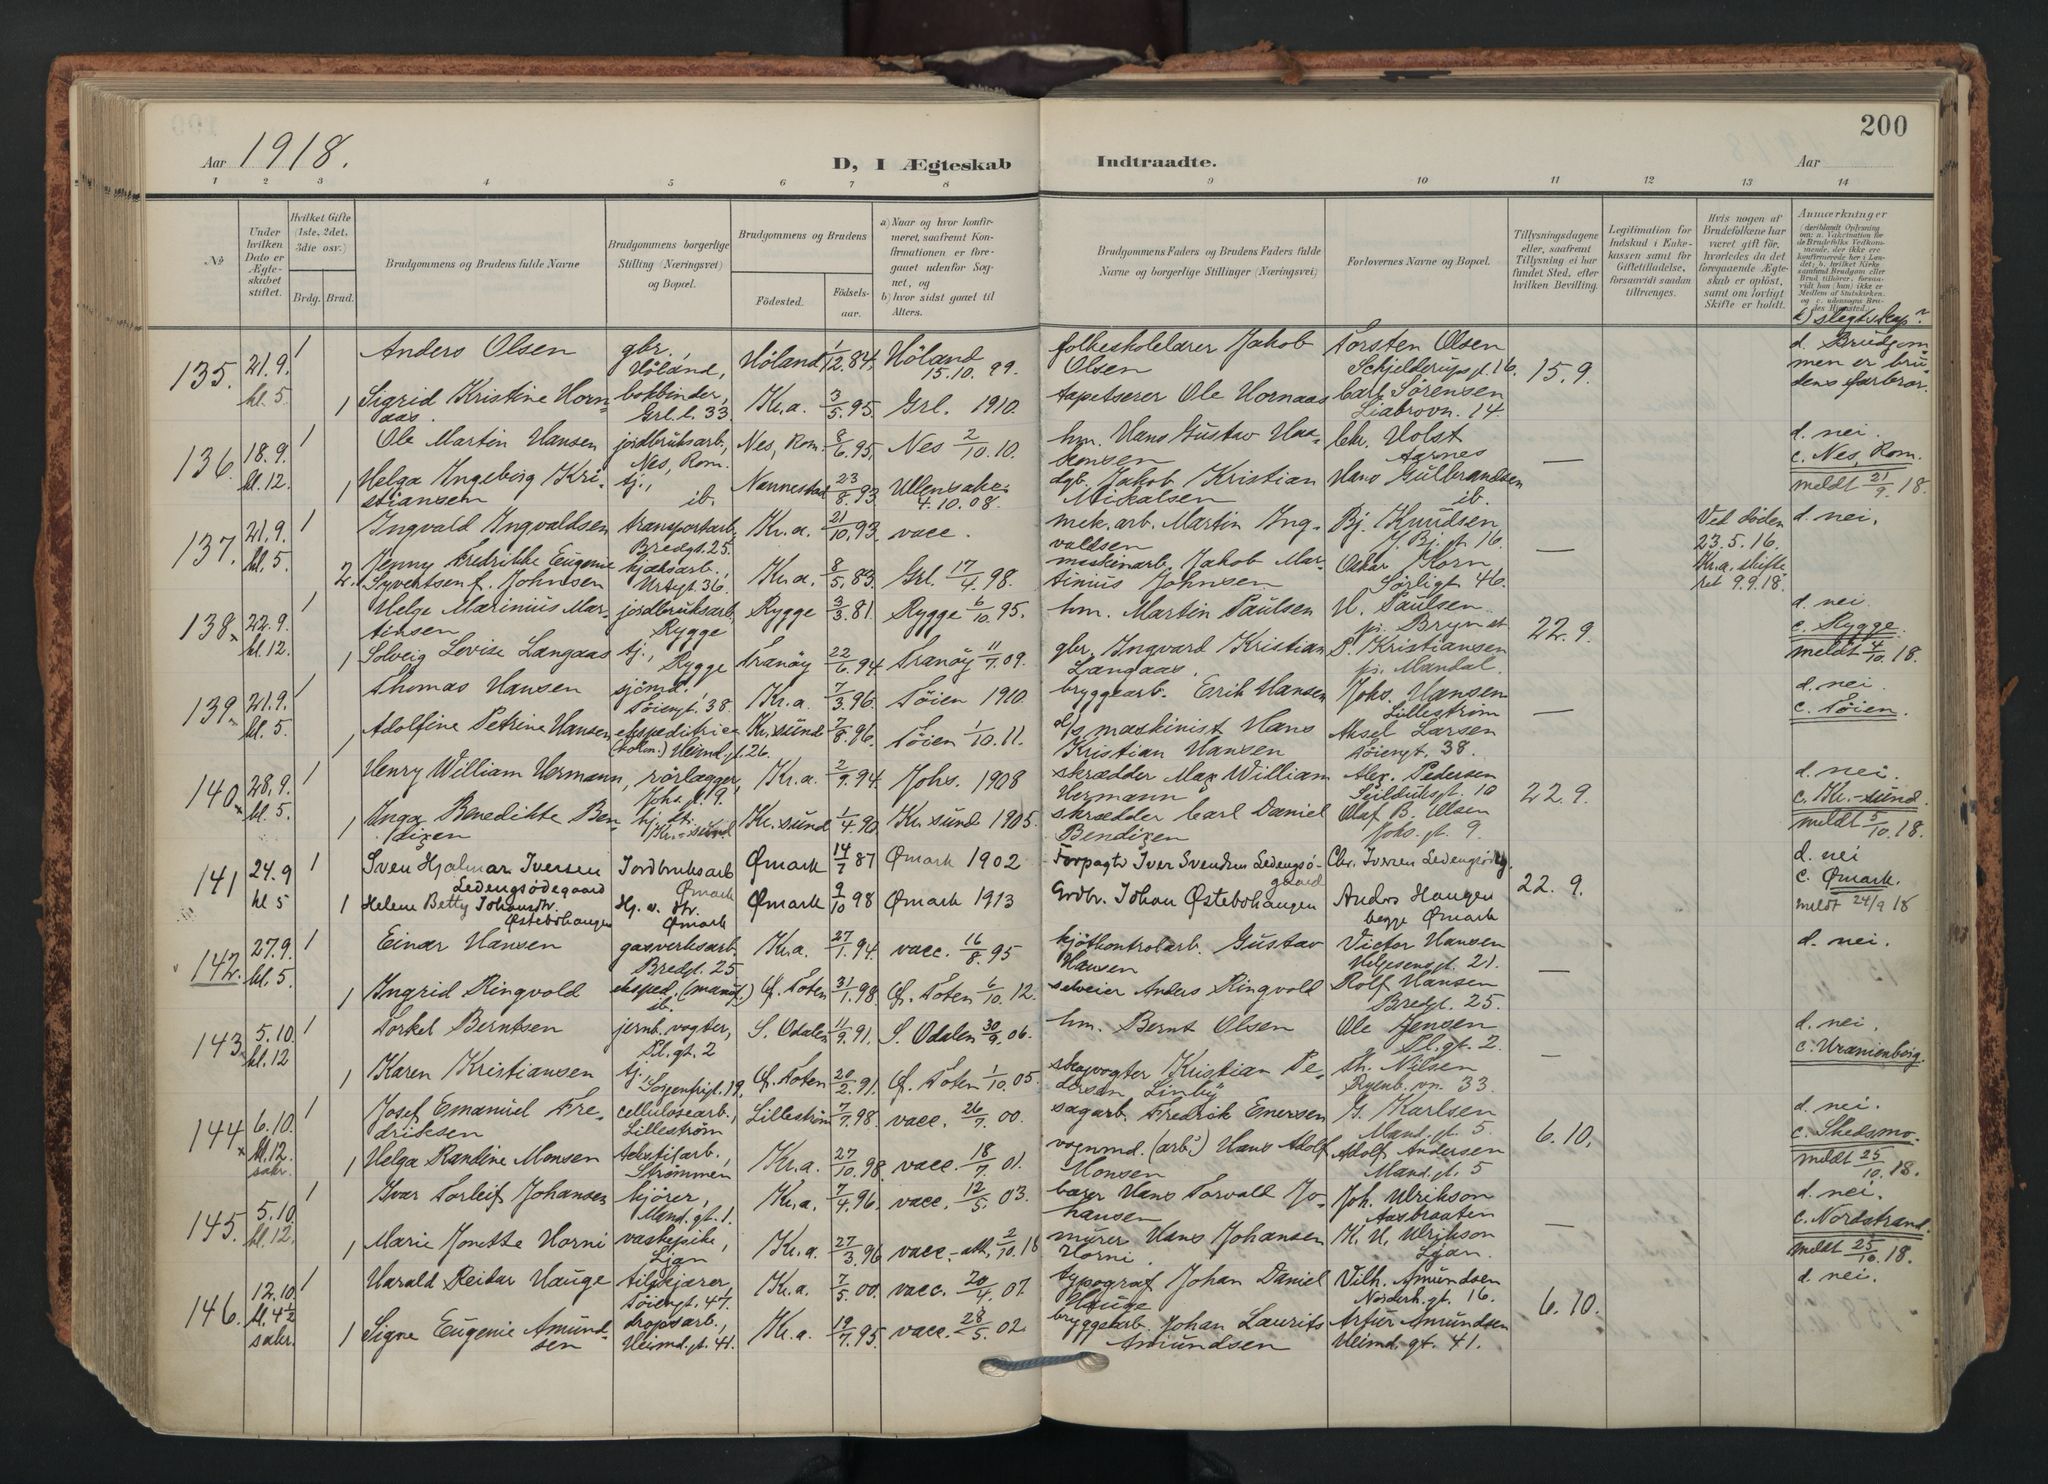 200
Aar 1918.
D, I Ægteskab
Indtraadte.
Aar
1 2 3 4 5 6 7 8 9 10 11 12 13 14
No
Under hvilken Dato er Ægteskabet stiftet.
Hvilket Gifte (1ste, 2det, 3die osv.)
Brdg. Brud.
Brudgommens og Brudens fulde Navne
Brudgommens borgerlige Stilling (Næringsvei) og Bopæl.
Brudgommens og Brudens
Fødested.
Fødselsaar.
a) Naar og hvor konfirmeret, saafremt Konfirmationen er foregaaet udenfor Sognet, og
b) hvor sidst gaaet til Alters.
Brudgommens Faders og Brudens Faders fulde Navne og borgerlige Stillinger (Næringsvei)
Forlovernes Navne og Bopæl.
Tillysningsdagene eller, saafremt Tillysning ei har fundet Sted, efter hvilken Bevilling.
Legitimation for Indskud i Enkekassen samt for Giftetilladelse, forsaavidt saadan tiltrænges.
Hvis nogen af Brudefolkene har været gift før, hvorledes da det foregaaende Ægteskab er opløst, samt om lovligt Skifte er holdt.
Anmærkninger
135. 21.9. kl. 5. 1 Anders Olsen gbr., Høland, Høland 1/12.84, Høland 15.10.99. folkeskolelærer Jakob Olsen Torsten Olsen Schjelderups gt. 16. 15.9. d. Brudgommen er brudens farbror.
1 Sigrid Kristine Hornaas bokbinder, Grl. l. 33. Kr.a. 3/5.95. Grl. 1910. tapetserer Ole Hornaas Carl Sørensen Liabrovn. 14.
136. 18.9. kl. 12. 1 Ole Martin Hansen jordbruksarb., Nes, Rom. Nes, Rom. 8/6.95, Nes 2/10.10. hm. Hans Gustav Haakonsen Chr. Holst Aarnes — d. nei. c. Nes, Rom. meldt 21/9.18.
1 Helga Ingeborg Kristiansen tj., ib. Nannestad 23/8.93. Ullensaker 4.10.08. dgb. Jakob Kristian Mickalsen Hans Gulbrandsen ib.
137. 21.9. kl. 5. 1 Ingvald Ingvaldsen transportarb., Bredgt. 25. Kr.a. 21/10.93. vacc. mek. arb. Martin Ingvaldsen Bj. Knudsen J. Bj. gt. 16. — Ved døden 23.5.16. Kr.a. skifteret 9.9.18. d. nei.
2. Jenny Fredrikke Eugenie Syvertsen f. Johnsen kjeksarb., Urtegt. 36. Kr.a. 8/5.83. Grl. 17/4.98. maskinarb. Jakob Martinius Johnsen Oskar Korn Sørligt. 46.
138. 22.9. kl. 12. 1 Helge Marinius Martinsen jordbruksarb., Rygge Rygge 3/3.81. Rygge 6/10.95. hm. Martin Paulsen H. Paulsen Bryn st 22.9. d. nei. c. Rygge. meldt 4/10.18.
1 Solveig Lovise Langaas tj., Rygge Tranøy 22/6.94. Tranøy 11/7.09. gbr. Ingvard Kristian Langaas. P. Kristiansen Mandal.
139. 21.9. kl. 5. 1 Thomas Hansen sjømd. Tøiengt. 38. Kr.a. 7/3.96. Tøien 1910. bryggearb. Erik Hansen Johs. Hansen Lillestrøm — d. nei. c. Tøien.
1 Adolfine Petrine Hansen ekspeditrice Heimd. gt. 26. Kr. sund 7/8.96. Tøien 1/10.11. d/s maskinist Hans Kristian Hansen Aksel Larsen Tøiengt. 38.
140. 28.9. kl. 5. 1 Henry William Hermann, rørlægger, Johs. gt. 9. Kr.a. 2/9.94. Johs. 1908 skrædder Max William Hermann Alex. Pedersen Seilduksgt. 10 22.9. d. nei. c. Kr.-sund. meldt 5/10.18.
1 Inga Benedikte Bendixen hj. ft. Kr.-sund Kr. sund 1/4.90. Kr. sund 1905. skrædder Carl Daniel Bendixen Olaf B. Olsen Johs. gt. 9.
141 24.9 kl 5 1 Sven Hjalmar Iversen Ledengsødegaard Jordbruksarb Ømark Ømark 14/7 87 Ømark 1902 Forpagtr Iver Svendsen Ledengsødegaard Chr. Iversen Ledengsødeg. 22.9. d. nei c. Ømark. meldt 24/9 18
1 Helene Betty Johansdtr. Østebøhaugen Hj. v. str. Ømark Ømark 9/10 98 Ømark 1913 Grdbr. Johan Østebøhaugen Anders Haugen begge Ømark
142. 27.9. kl. 5. 1 Einar Hansen gasverksarb. Bredgt. 25 Kr.a. 27/1.94. vacc. 16/8.95 kjøtkontrolarb. Gustav Hansen Victor Hansen Helgesensgt. 21. — d. nei.
1 Ingrid Ringvold eksped. (manuf.) ib. Ø. Toten 31/1.98. Ø. Toten 6/10.12. selveier Anders Ringvold Rolf Hansen Bredgt. 25.
143. 5.10. kl. 12 1 Torkel Berntsen jernb. vogter, Pl. gt. 2 S. Odalen 11/9.91. S. Odalen 30/9.06. hm. Bernt Olsen Ole Jensen Pl. gt. 2. — d. nei. c. Uranienborg.
1 Karen Kristiansen tj., Sorgenfrigt. 19. Ø. Toten 20/2.91. Ø. Toten 1/10.05. skogvogter Kristian Pedersen Linby Th. Nilsen Ryenb. vn. 33.
144. 6.10. kl. 12. sakr. 1 Josef Emanuel Fredriksen cellulosearb., Lillestrøm Lillestrøm 7/7.98. vacc. 26/7.00. sagarb. Fredrik Emersen G. Karlsen Mand. gt. 5. 6.10. d. nei. c. Skedsmo. meldt 25/10.18.
1 Helga Randine Monsen tekstilarb., Strømmen Kr.a. 27/10.98. vacc. 18/7.01. vognmd. (arb.) Hans Adolf Monsen Adolf Andersen Mand. gt. 5
145. 5.10. kl. 12. 1 Ivar Torleif Johansen kjører, Mand. gt. 1. Kr.a. 7/4.96. vacc. 12/5.03. bærer Hans Torvald Johansen Joh. Ulrikson Aasbraaten — d. nei. c. Nordstrand. meldt 25/10.18.
1 Marie Jonette Horni vaskepike, Ljan Kr.a. 27/3.96. vacc.-att. 2/10.18 murer Hans Johansen Horni. K. H. Ulrikson Ljan.
146. 12.10. kl. 4½ sakr. 1 Harald Reidar Hauge tilskjærer, Tøiengt. 47. Kr.a. 7/5.00. vacc. 20/4.07. typograf Johan Daniel Hauge Vilh. Amundsen Norderh. gt. 16. 6.10. d. nei.
1 Signe Eugenie Amundsen dropsarb., Heimd. gt. 41. Kr.a. 19/7.95. vacc. 28/5.02. bryggearb. Johan Laurits Amundsen Artur Amundsen Heimd. gt. 41.